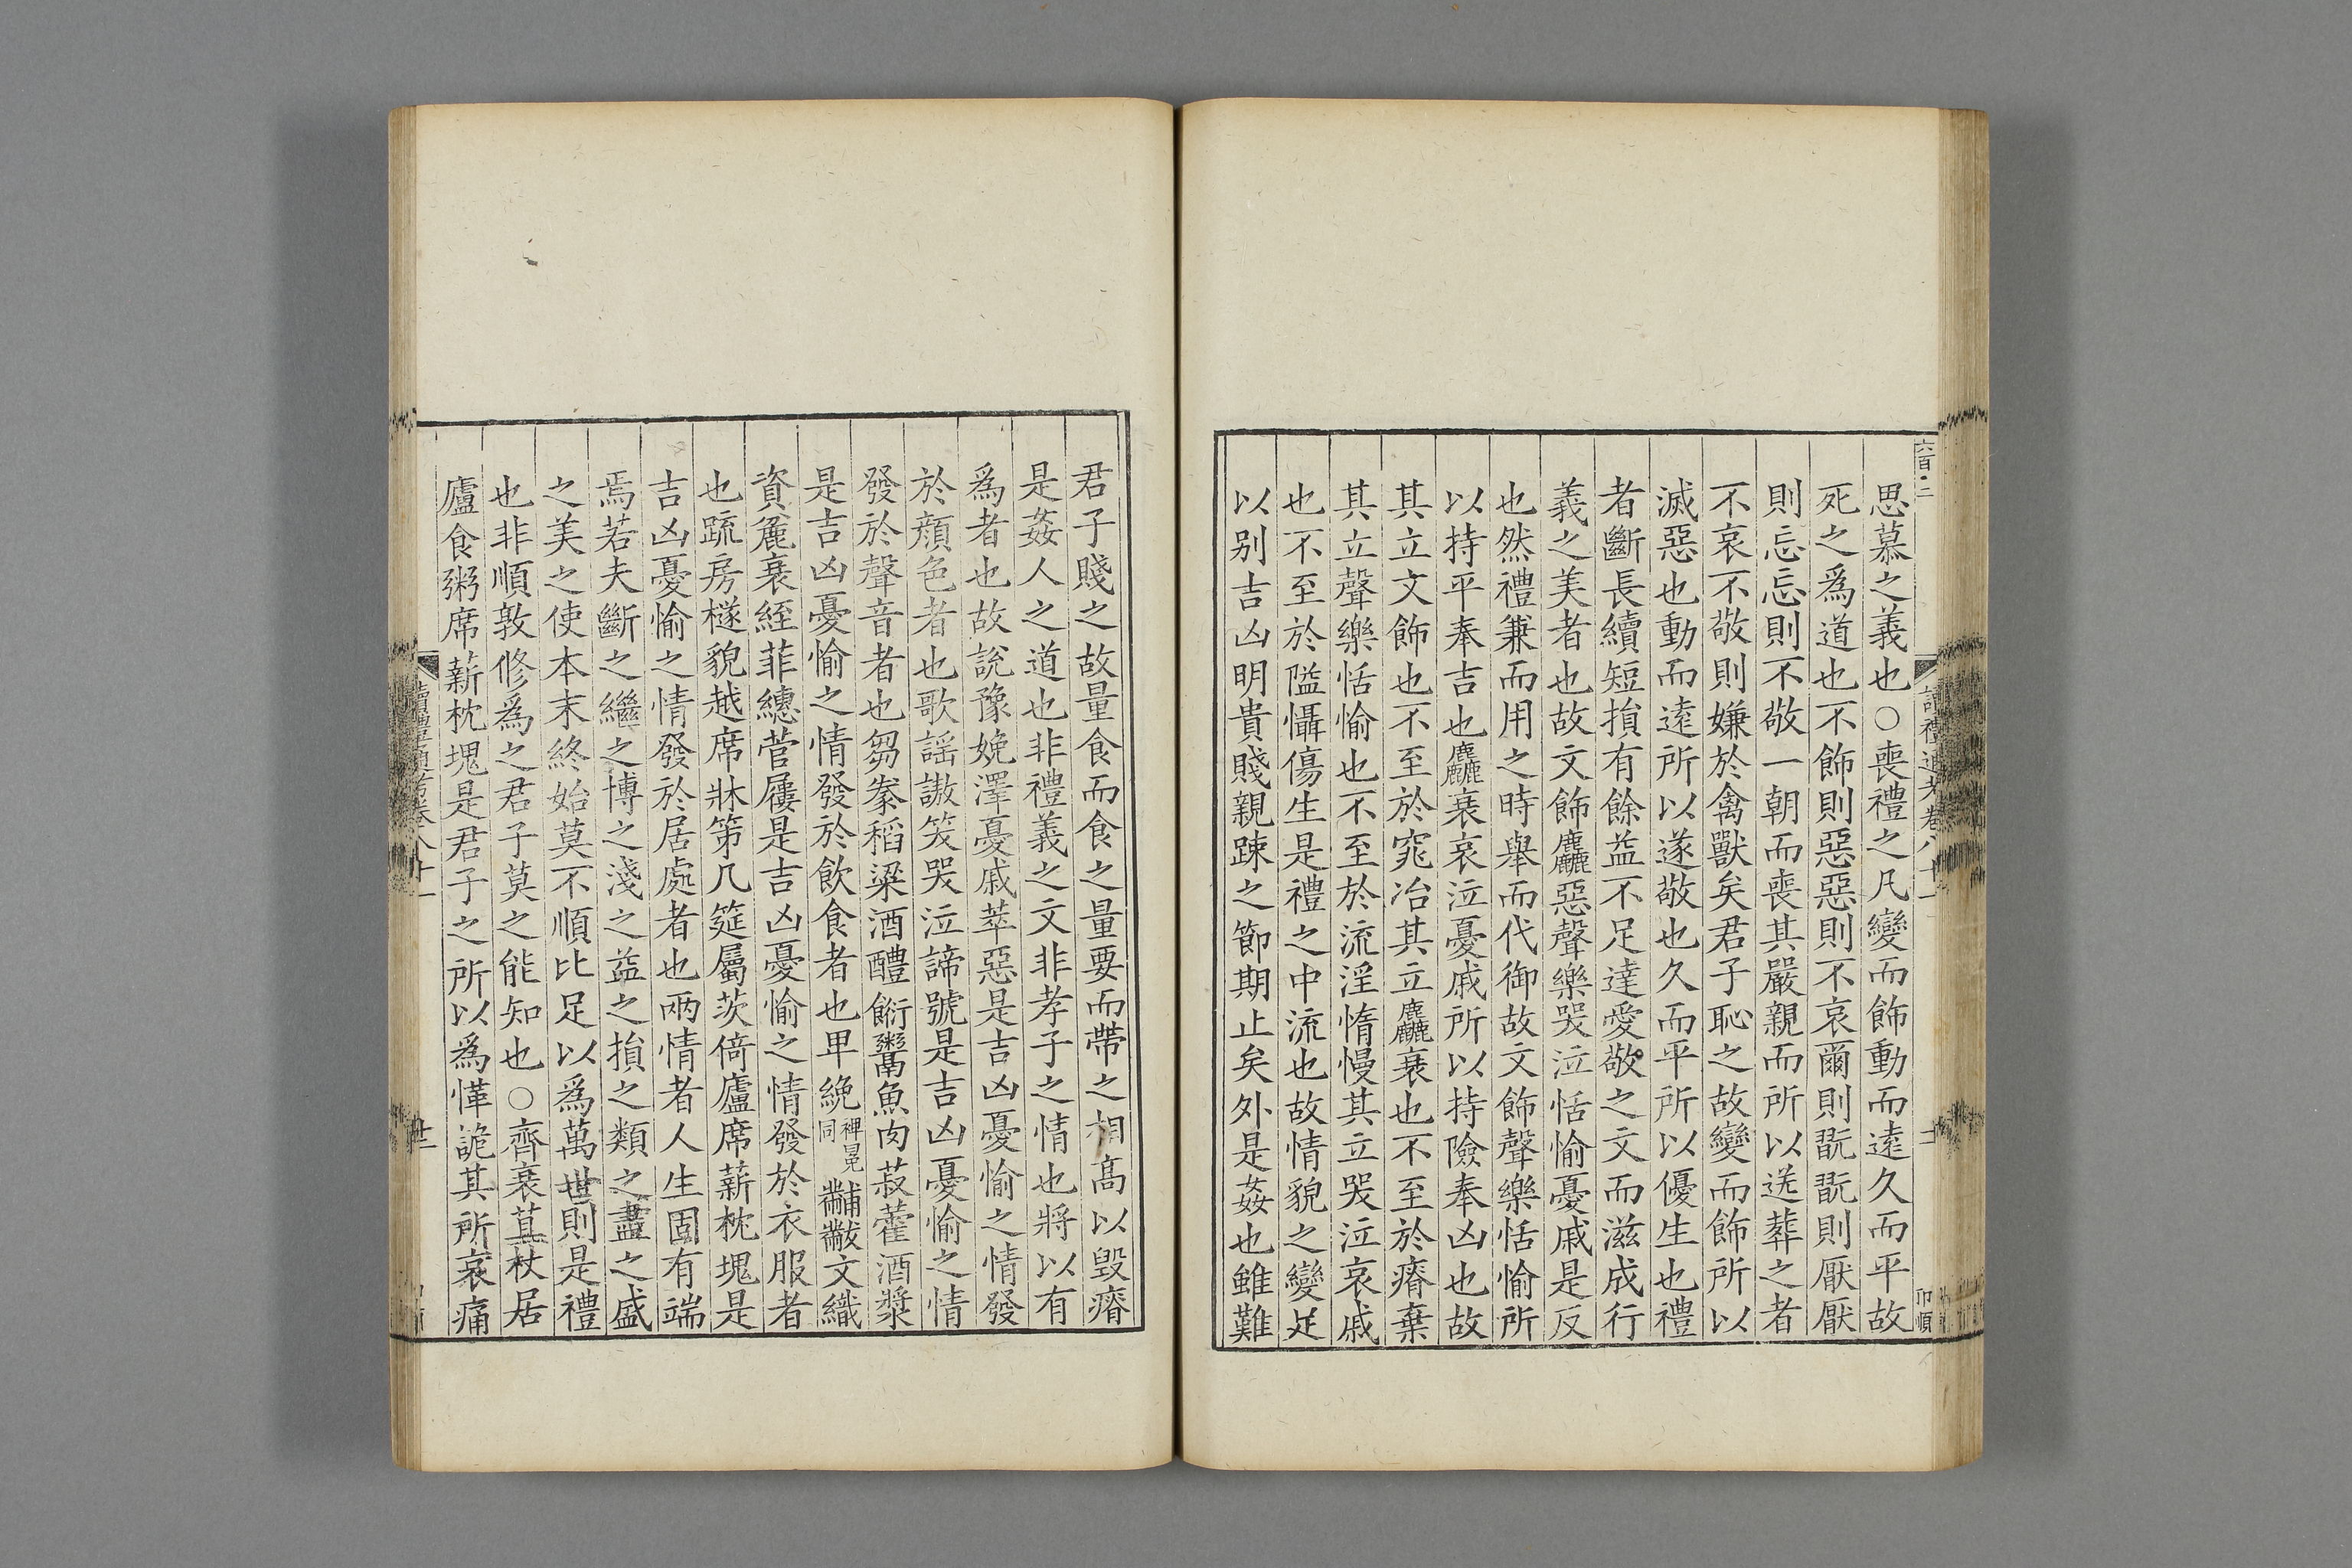 六百二
思慕之義也○喪禮之凡變而飾動而逺久而平故
死之爲道也不飾則惡惡則不哀爾則翫翫則厭厭
則忘忘則不敬一朝而喪其嚴親而所以送葬之者
不哀不敬則嫌於禽獸矣君子恥之故變而飾所以
滅惡也動而逺所以遂敬也久而平所以優生也禮
者斷長續短損有餘益不足達愛敬之文而滋成行
義之美者也故文飾麤惡聲樂哭泣恬愉憂戚是反
也然禮兼而用之時舉而代御故文飾聲樂恬愉所
以持平奉吉也麤衰哀泣憂戚所以持險奉凶也故
其立文飾也不至於窕冶其立麤衰也不至於瘠棄
其立聲樂恬愉也不至於流淫惰慢其立哭泣哀戚
也不至於隘懾傷生是禮之中流也故情貌之變足
以別吉凶明貴賤親踈之節期止矣外是姦也雖難
君子賤之故量食而食之量要而帶之相高以毀瘠
是姦人之道也非禮義之文非孝子之情也將以有
爲者也故說豫娩澤憂戚萃惡是吉凶憂愉之情發
於顔色者也歌謡謸笑哭泣諦號是吉凶憂愉之情
發於聲音者也芻豢稻粱酒醴餰鬻魚肉菽藿酒漿
是吉凶憂愉之情發於飲食者也卑絻裨冕同黼黻文織
資麤衰絰菲繐菅屨是吉凶憂愉之情發於衣服者
也疏房檖貌越席牀笫几筵屬茨倚廬席薪枕塊是
吉凶憂愉之情發於居處者也兩情者人生固有端
焉若夫斷之繼之博之淺之益之損之類之盡之盛
之美之使本末終始莫不順比足以爲萬世則是禮
也非順孰修爲之君子莫之能知也○齊衰苴杖居
廬食粥席薪枕塊是君子之所以爲愅詭其所哀痛